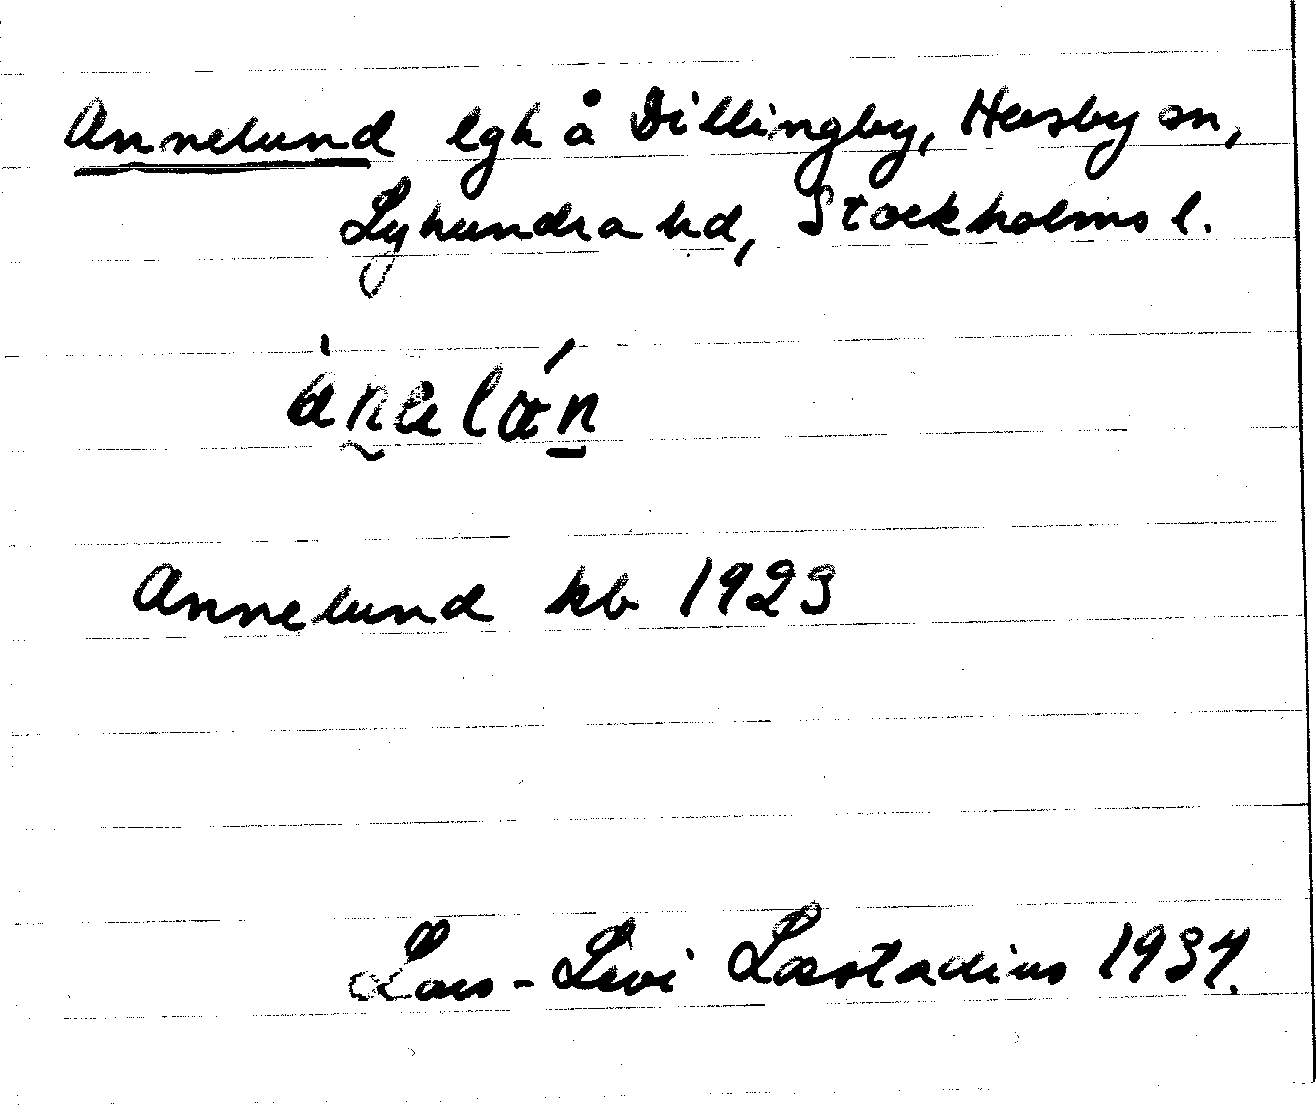 Annelund lgh å Dillingby, Husby sn,
Lyhundra hd, Stockholms l.
Annelund kb 1923
Lars-Levi Læstadius 1937.